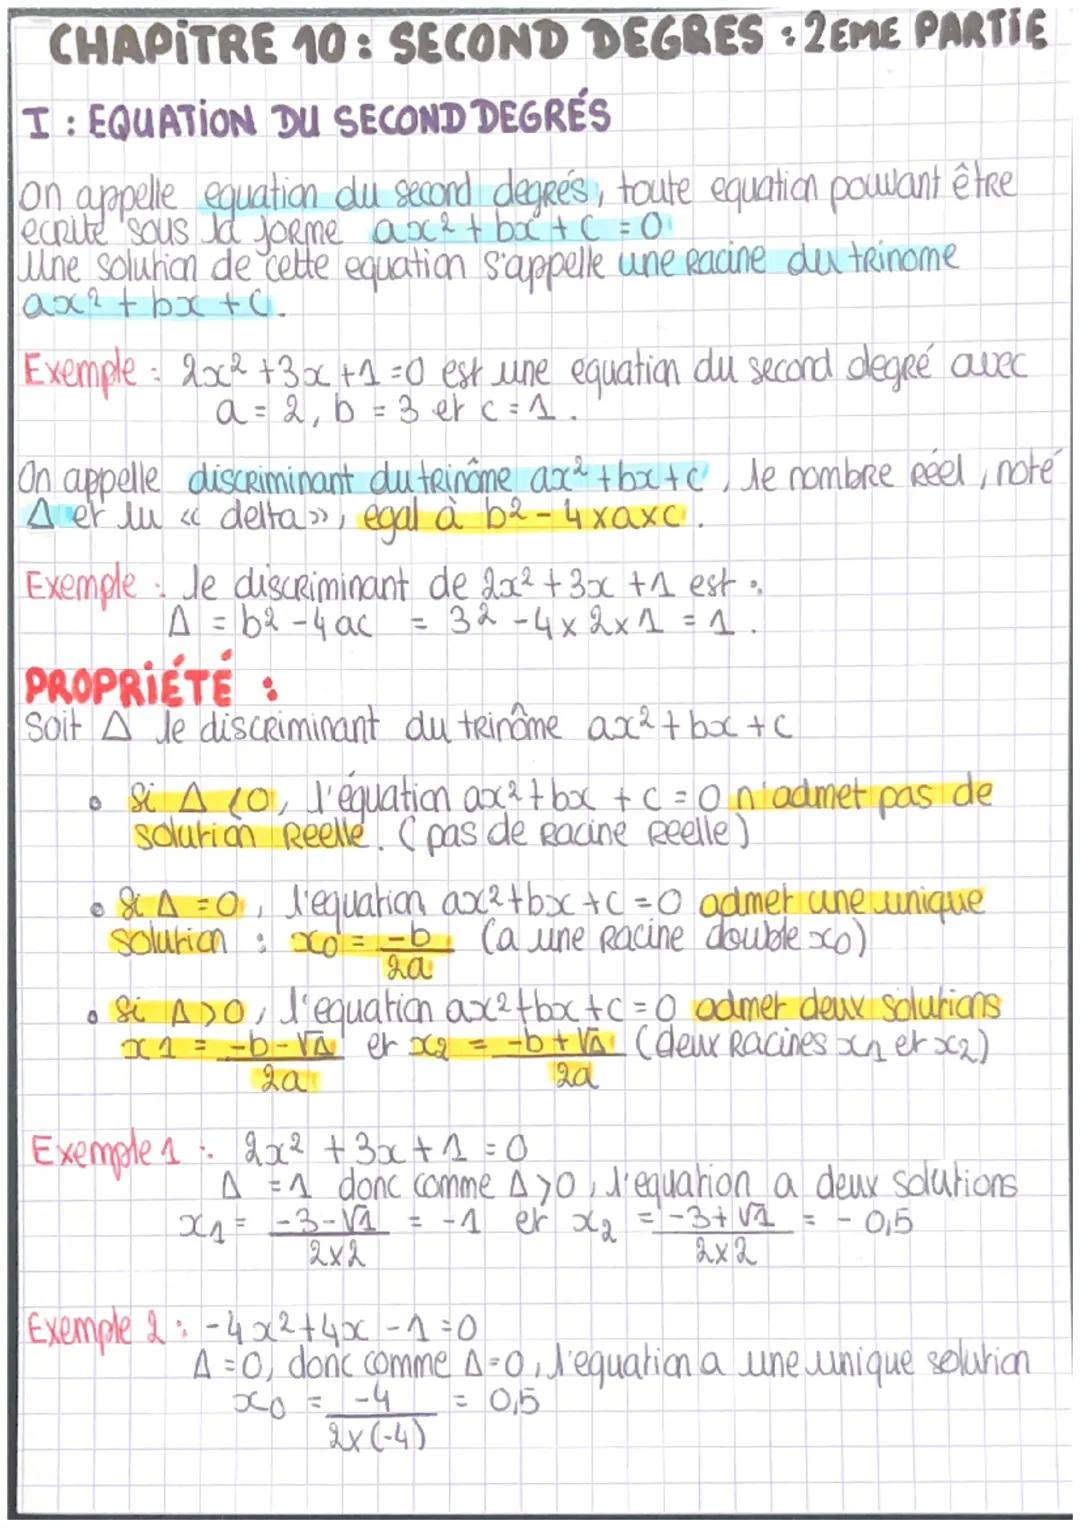 CHAPITRE 10 : SECOND DEGRES : 2EME PARTIE
I : EQUATION DU SECOND DEGRÉS
On appelle equation du second degrés, toute equation pouvant être
ecrite sous la forme ax² + bx + c = 0
Une solution de cette equation s'appelle une racine du trinome
ax² + bx + c.
Exemple : 2x² + 3x + 1 = 0 est une equation du second degré avec
a = 2, b = 3 et c = 1.
On appelle discriminant du trinôme ax² + bx + c, le nombre réel, noté
Δ et lu « delta », egal à b² - 4 x a x c.
Exemple : le discriminant de 2x² + 3x + 1 est :
Δ = b² - 4ac = 3² - 4 x 2 x 1 = 1.
PROPRIÉTÉ :
soit Δ le discriminant du trinôme ax² + bx + c
• Si Δ < 0, l'équation ax² + bx + c = 0 n'admet pas de
solution reelle. (pas de racine reelle)
• Si Δ = 0, l'equation ax² + bx + c = 0 admet une unique
solution : x0 = -b / 2a (a une racine double x0)
• Si Δ > 0, l'equation ax² + bx + c = 0 admet deux solutions
x1 = -b - √Δ / 2a et x2 = -b + √Δ / 2a (deux racines x1 et x2)
Exemple 1 : 2x² + 3x + 1 = 0
Δ = 1 donc comme Δ > 0, l'equation a deux solutions
x1 = -3 - √1 / 2x2 = -1 et x2 = -3 + √1 / 2x2 = -0,5
Exemple 2 : -4x² + 4x - 1 = 0
Δ = 0, donc comme Δ = 0, l'equation a une unique solution
x0 = -4 / 2x(-4) = 0,5